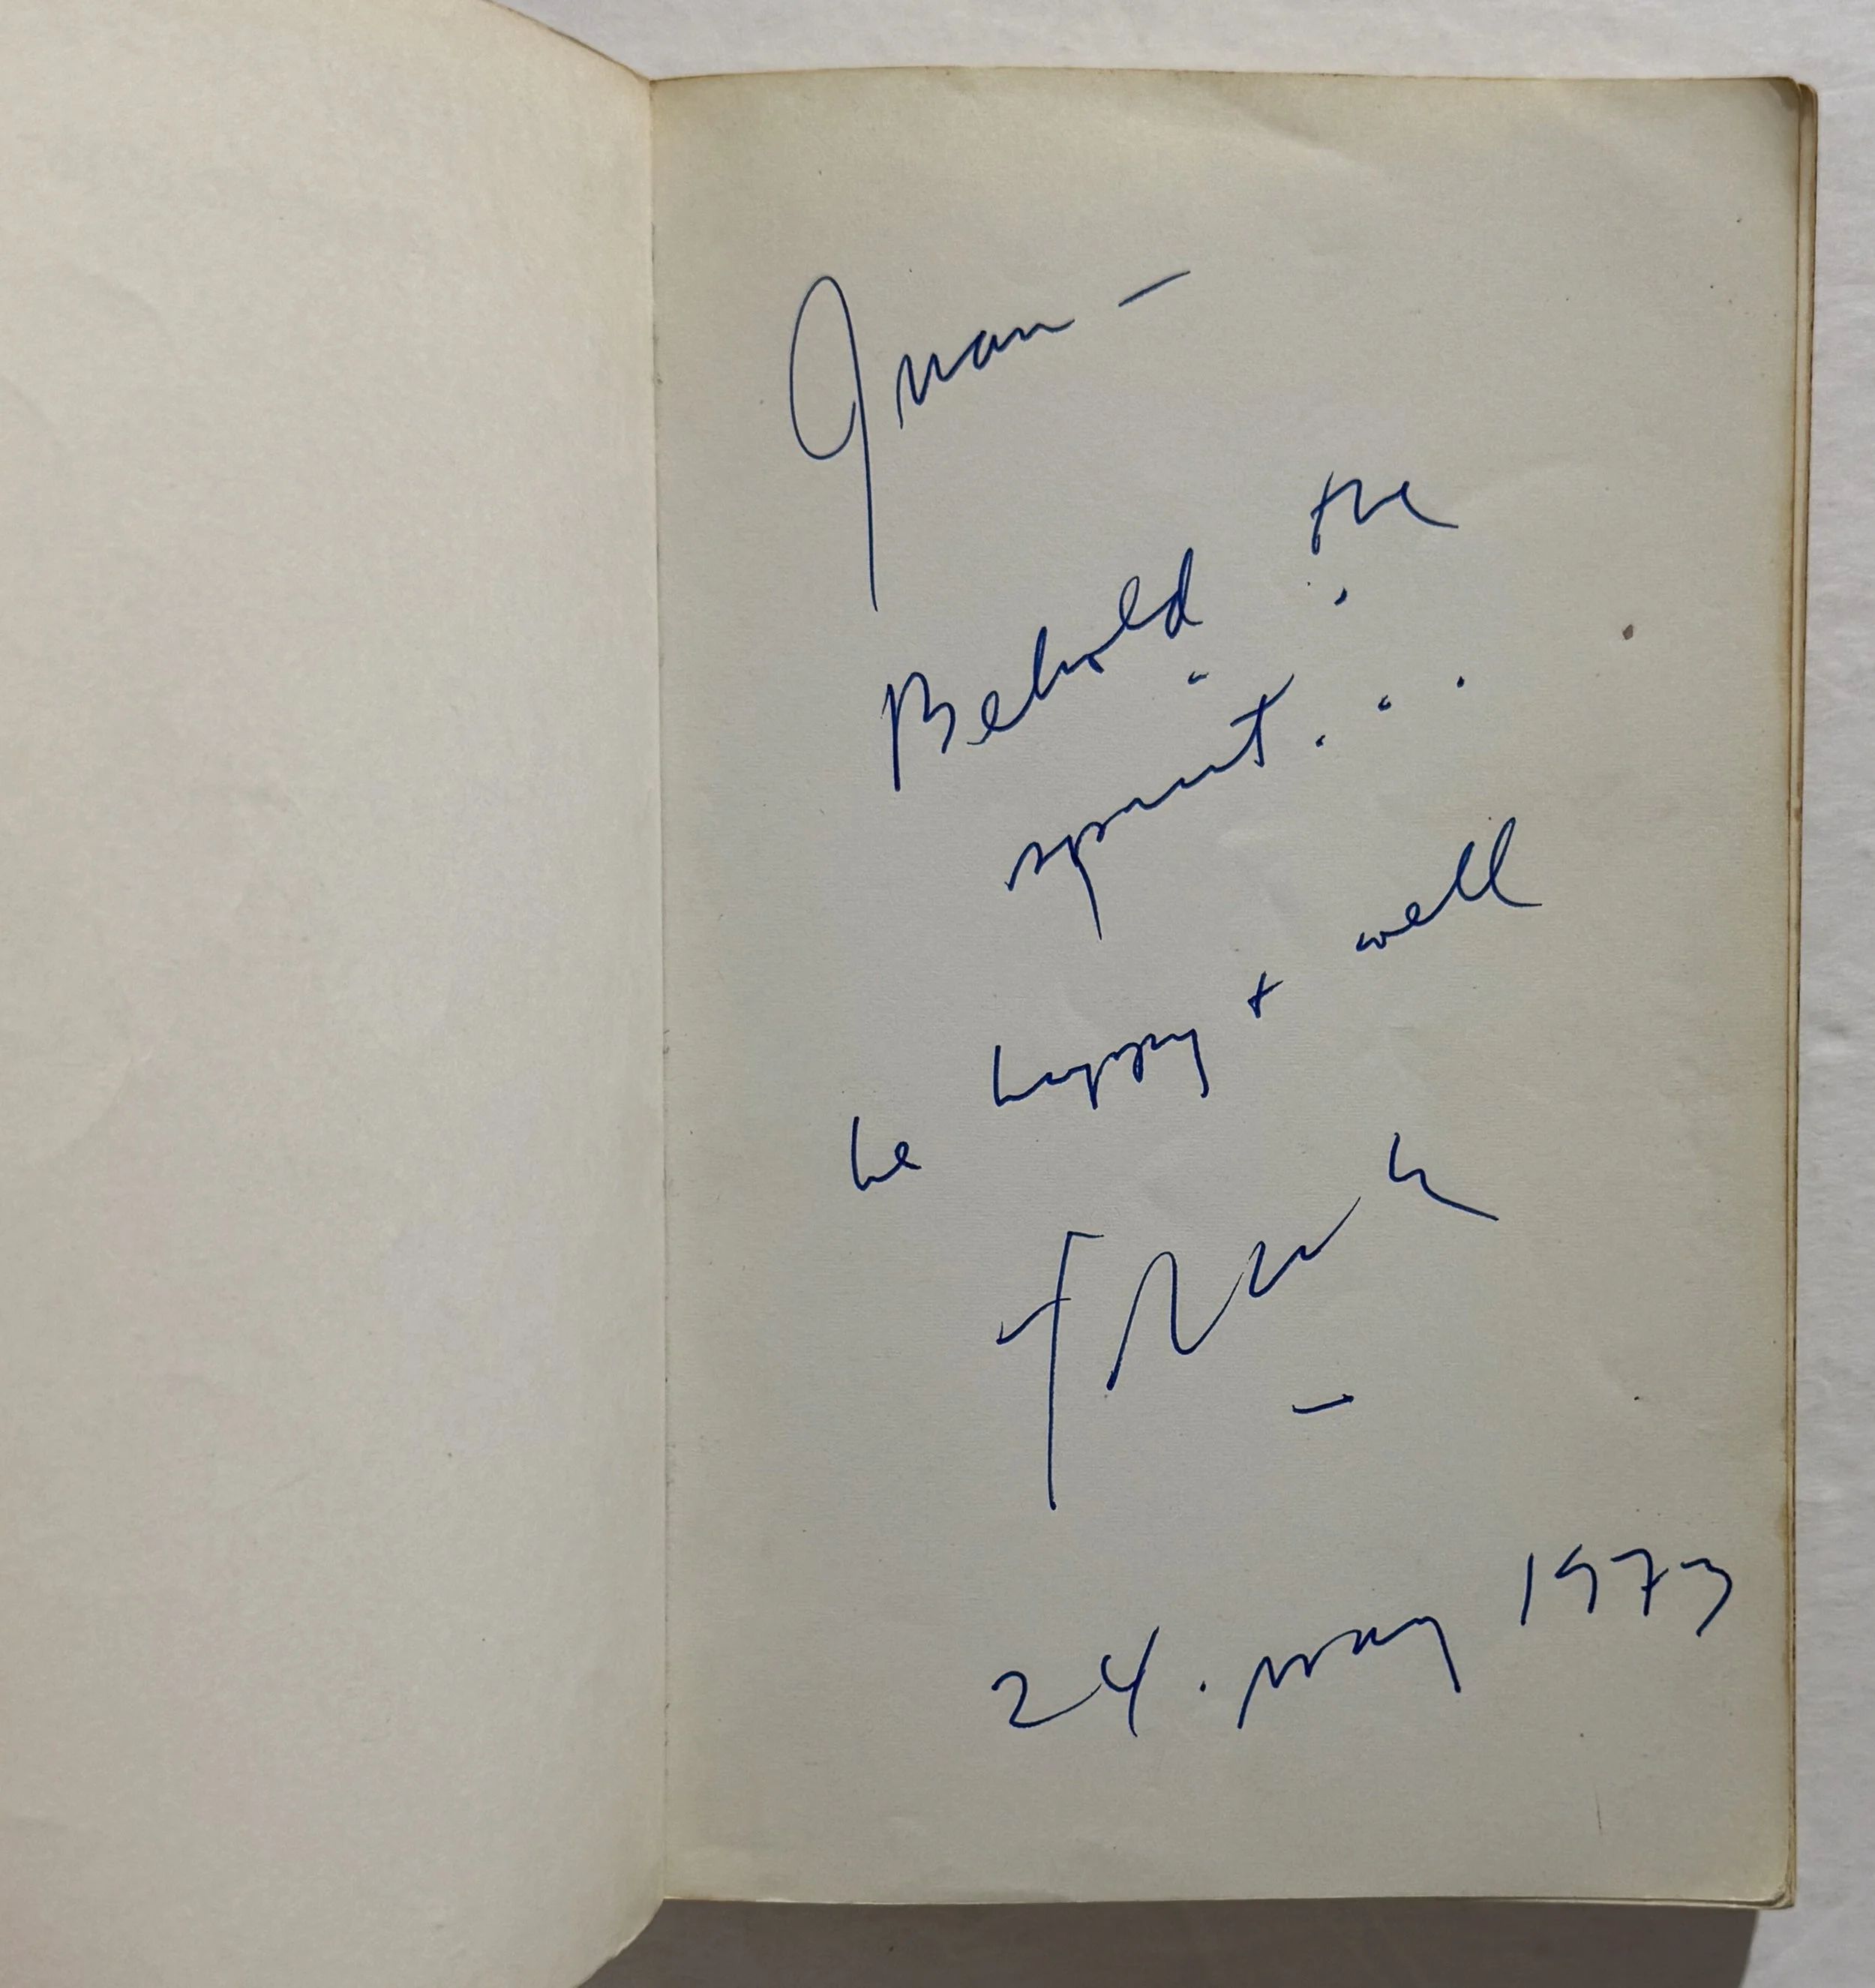 Juan —
Behold the
spirit...
be happy + well
Frank
24. May 1973